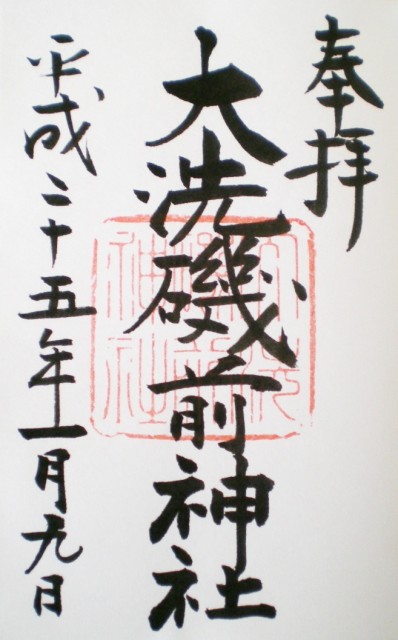 奉拝
大洗磯前神社
平成二十五年一月九日